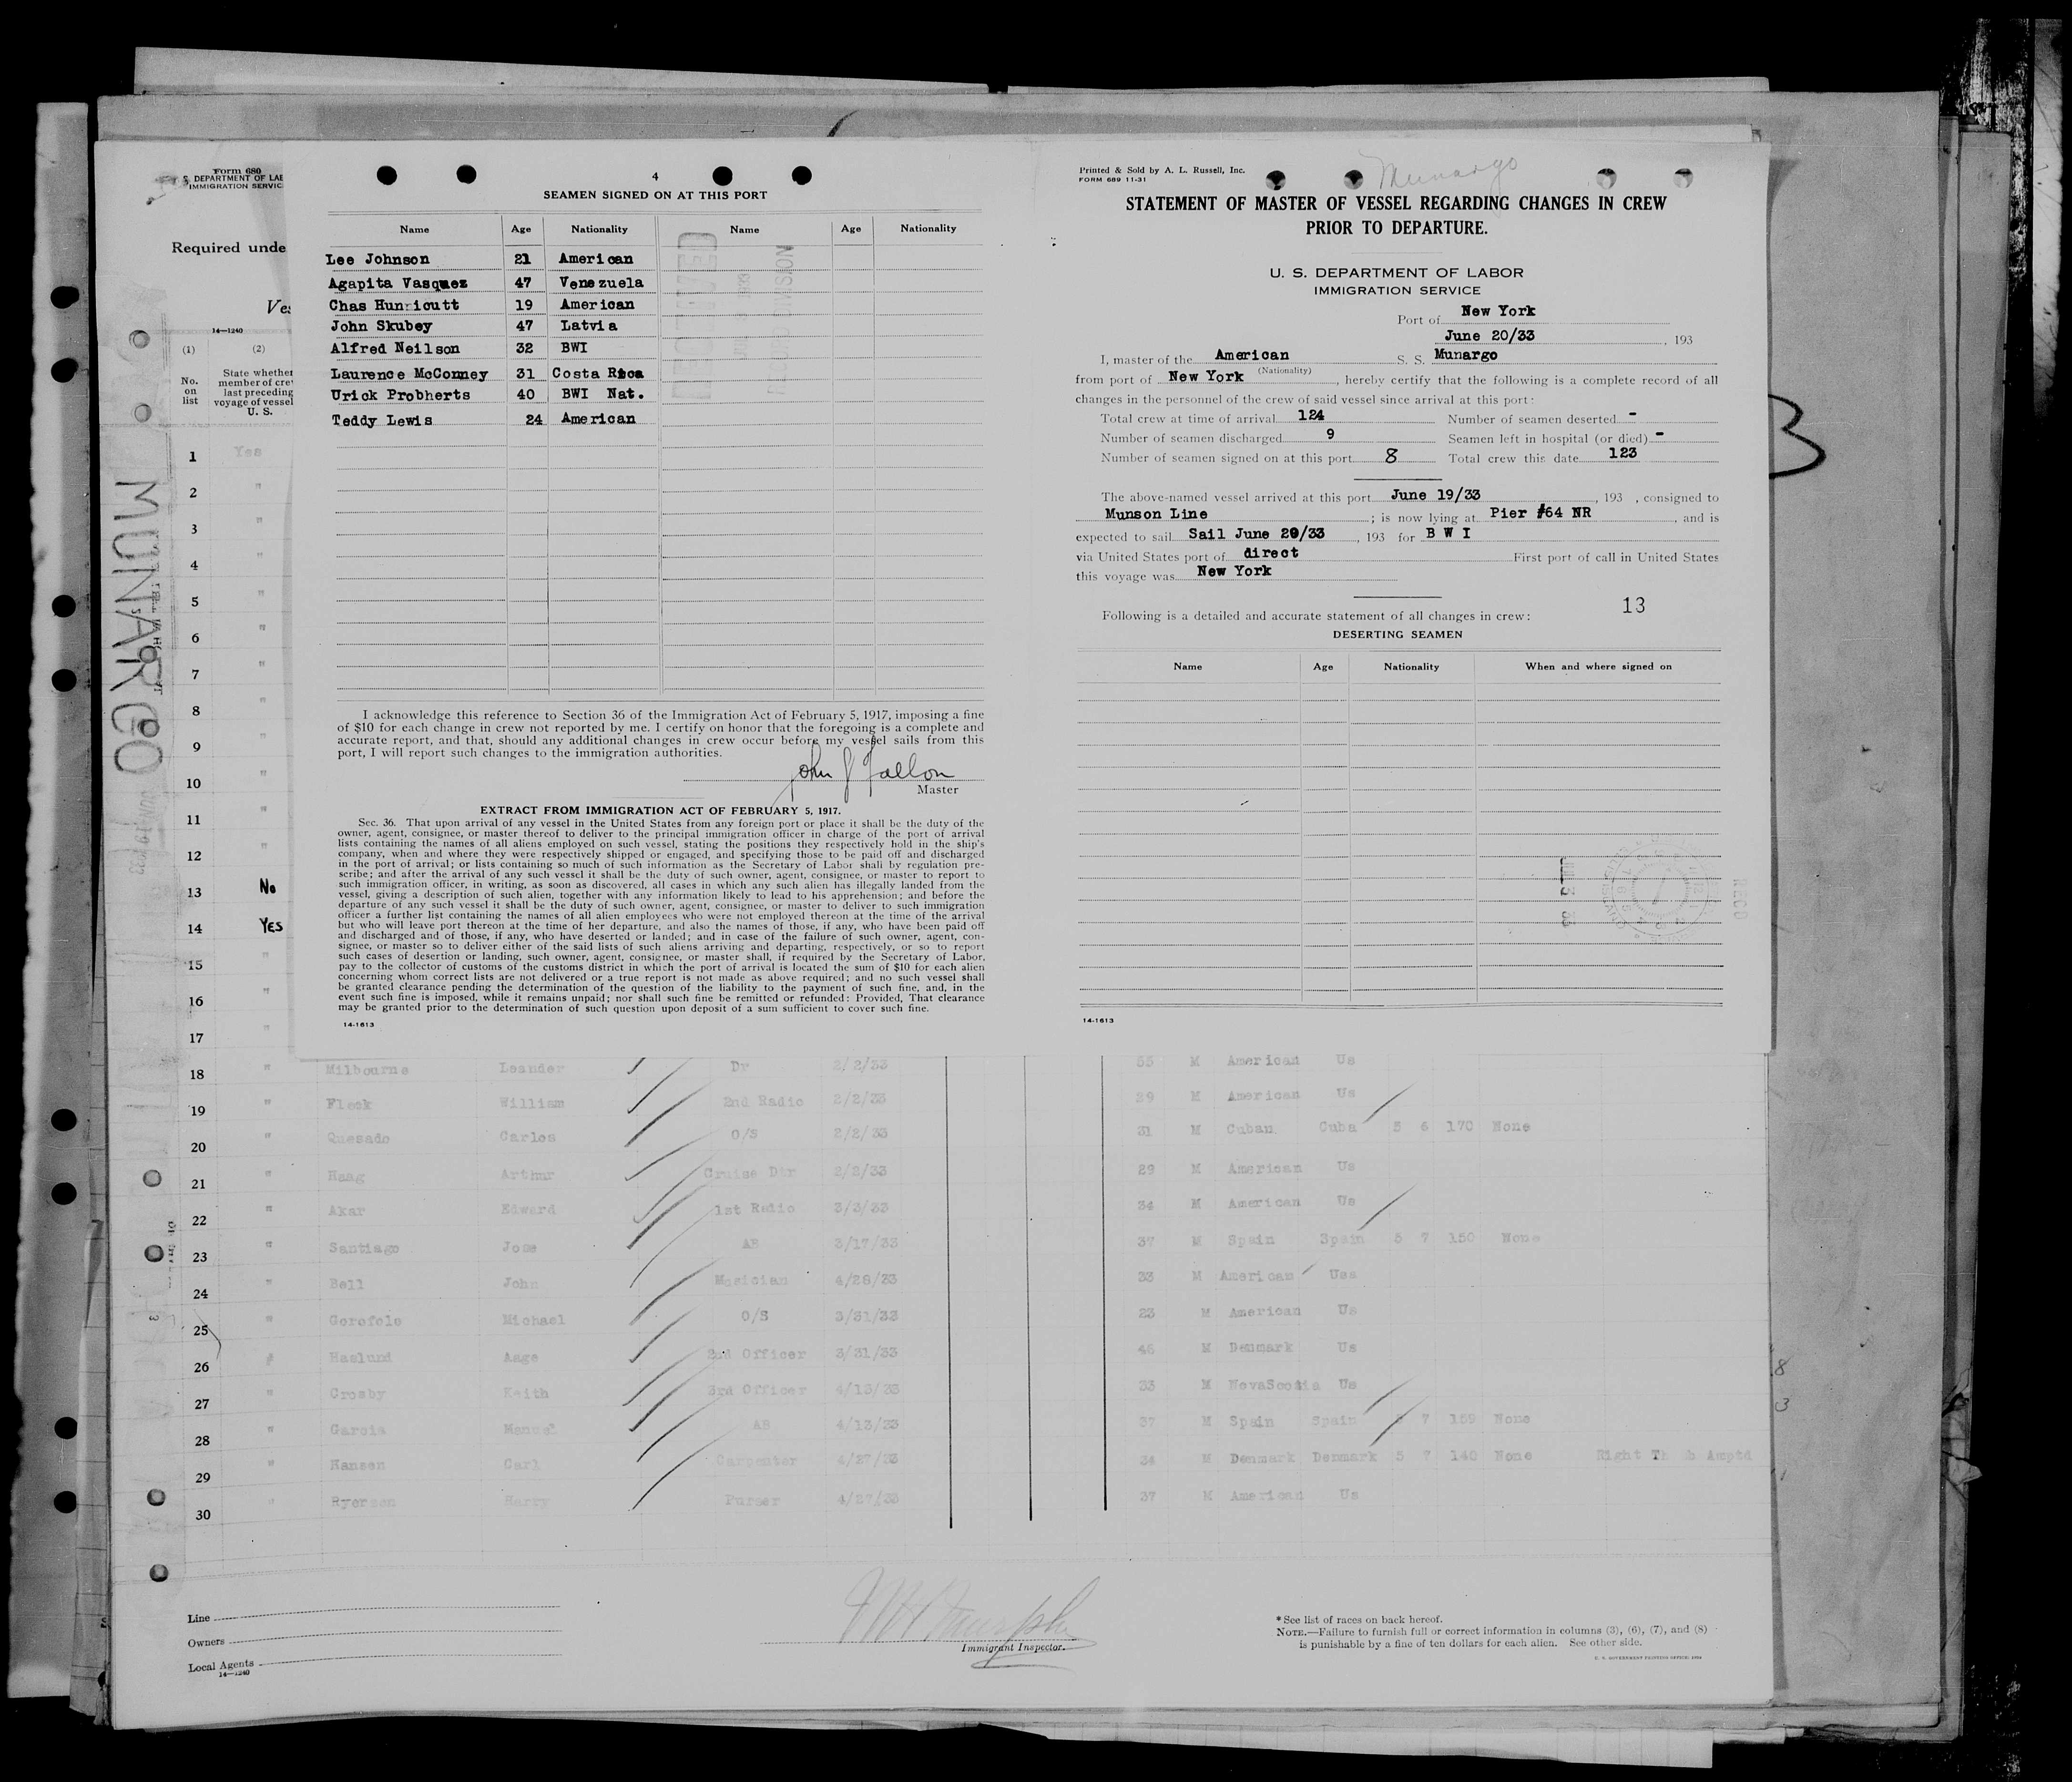 Form 680
S. DEPARTMENT OF LAB
IMMIGRATION SERVIC
Required unde
Ves
14—1240
(1) (2)
No. on list
State whether
member of crew
last preceding
voyage of vessel
U. S.
1 Yes
2 "
3 "
4 "
5 "
6 "
7 "
8 "
9 "
10 "
11 "
12 "
13 No
14 YES
15 "
16 "
17 "
MUNARGO
4
SEAMEN SIGNED ON AT THIS PORT
Name Age Nationality Name Age Nationality
Lee Johnson 21 American
Agapita Vasquez 47 Venezuela
Chas Hunricutt 19 American
John Skubey 47 Latvia
Alfred Neilson 32 BWI
Laurence McConney 31 Costa Rica
Urick Probherts 40 BWI Nat.
Teddy Lewis 24 American
I acknowledge this reference to Section 36 of the Immigration Act of February 5, 1917, imposing a fine
of $10 for each change in crew not reported by me. I certify on honor that the foregoing is a complete and
accurate report, and that, should any additional changes in crew occur before my vessel sails from this
port, I will report such changes to the immigration authorities.
John J Fallon
Master
EXTRACT FROM IMMIGRATION ACT OF FEBRUARY 5, 1917.
Sec. 36. That upon arrival of any vessel in the United States from any foreign port or place it shall be the duty of the
owner, agent, consignee, or master thereof to deliver to the principal immigration officer in charge of the port of arrival
lists containing the names of all aliens employed on such vessel, stating the positions they respectively hold in the ship's
company, when and where they were respectively shipped or engaged, and specifying those to be paid off and discharged
in the port of arrival; or lists containing so much of such information as the Secretary of Labor shall by regulation pre-
scribe; and after the arrival of any such vessel it shall be the duty of such owner, agent, consignee, or master to report to
such immigration officer, in writing, as soon as discovered, all cases in which any such alien has illegally landed from the
vessel, giving a description of such alien, together with any information likely to lead to his apprehension; and before the
departure of any such vessel it shall be the duty of such owner, agent, consignee, or master to deliver to such immigration
officer a further list containing the names of all alien employees who were not employed thereon at the time of the arrival
but who will leave port thereon at the time of her departure, and also the names of those, if any, who have been paid off
and discharged and of those, if any, who have deserted or landed; and in case of the failure of such owner, agent, con-
signee, or master so to deliver either of the said lists of such aliens arriving and departing, respectively, or so to report
such cases of desertion or landing, such owner, agent, consignee, or master shall, if required by the Secretary of Labor,
pay to the collector of customs of the customs district in which the port of arrival is located the sum of $10 for each alien
concerning whom correct lists are not delivered or a true report is not made as above required; and no such vessel shall
be granted clearance pending the determination of the question of the liability to the payment of such fine, and, in the
event such fine is imposed, while it remains unpaid; nor shall such fine be remitted or refunded: Provided, That clearance
may be granted prior to the determination of such question upon deposit of a sum sufficient to cover such fine.
14-1613
Printed & Sold by A. L. Russell, Inc.
FORM 689 11-31
Munargo
STATEMENT OF MASTER OF VESSEL REGARDING CHANGES IN CREW
PRIOR TO DEPARTURE.
U. S. DEPARTMENT OF LABOR
IMMIGRATION SERVICE
Port of New York
June 20/33, 193
I, master of the American S. S. Munargo
(Nationality)
from port of New York, hereby certify that the following is a complete record of all
changes in the personnel of the crew of said vessel since arrival at this port:
Total crew at time of arrival 124 Number of seamen deserted -
Number of seamen discharged 9 Seamen left in hospital (or died) -
Number of seamen signed on at this port 8 Total crew this date 123
The above-named vessel arrived at this port June 19/33, 193 , consigned to
Munson Line; is now lying at Pier #64 NR, and is
expected to sail Sail June 20/33, 193 for B W I
via United States port of direct First port of call in United States
this voyage was New York
13
Following is a detailed and accurate statement of all changes in crew:
DESERTING SEAMEN
Name Age Nationality When and where signed on
JUL 3 33
RECD
14-1613
3
18 " Milbourne Leander Dr 2/2/33 55 M American Us
19 " Fleck William 2nd Radio 2/2/33 29 M American Us
20 " Quesado Carlos O/S 2/2/33 31 M Cuban Cuba 5 6 170 None
21 " Haag Arthur Cruise Dir 2/2/33 29 M American Us
22 " Akar Edward 1st Radio 3/3/33 34 M American Us
23 " Santiago Jose AB 3/17/33 37 M Spain Spain 5 7 150 None
24 " Bell John Musician 4/28/33 33 M American Usa
25 " Gorofolo Michael O/S 3/31/33 23 M American Us
26 " Haslund Aage 2nd Officer 3/31/33 46 M Denmark Us
27 " Crosby Keith 3rd Officer 4/13/33 33 M NovaScotia Us
28 " Garcia Manuel AB 4/13/33 37 M Spain Spain 5 7 159 None
29 " Hansen Carl Carpenter 4/27/33 34 M Denmark Denmark 5 7 140 None Right Th b Amptd
30 " Ryerson Harry Purser 4/27/33 37 M American Us
Line
Owners
Local Agents
14—1240
Immigrant Inspector.
*See list of races on back hereof.
NOTE.—Failure to furnish full or correct information in columns (3), (6), (7), and (8)
is punishable by a fine of ten dollars for each alien. See other side.